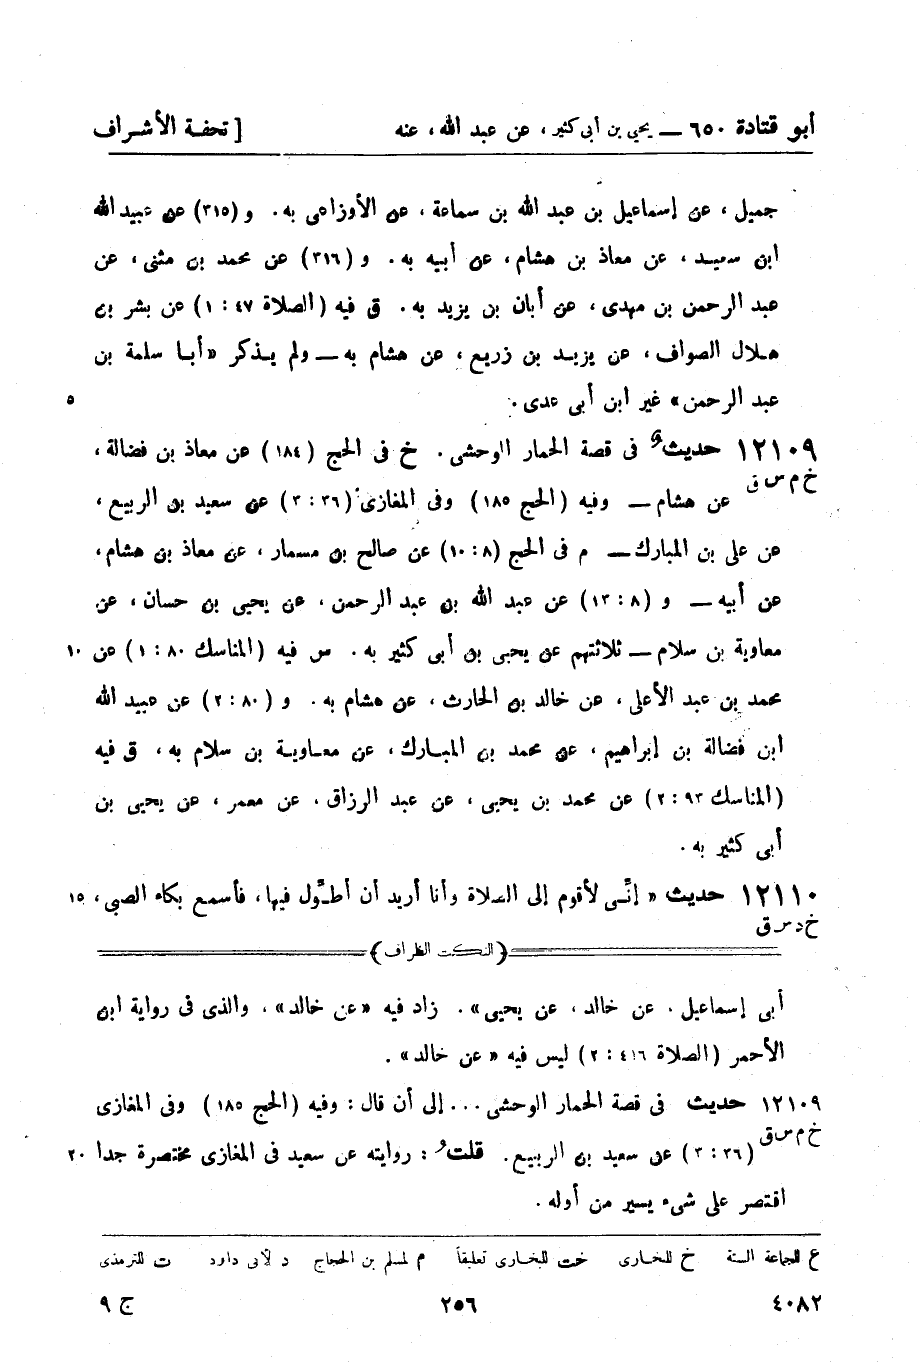 أبو قتادة ٦٥٠ — يحيى بن أبى كثير، عن عبد الله، عنه [ تحفة الأشراف
جميل، عن إسماعيل بن عبد الله بن سماعة، عن الأوزاعى به. و (٣١٥) عن عبيد الله
ابن سعيد، عن معاذ بن هشام، عن أبيه به. و (٣١٦) عن محمد بن مثنى، عن
عبد الرحمن بن مهدى، عن أبان بن يزيد به. ق فيه (الصلاة ٤٧ : ١) عن بشر بن
هلال الصواف، عن يزيد بن زريع، عن هشام به — ولم يذكر «أبا سلمة بن
عبد الرحمن» غير ابن أبى عدى. ٥
١٢١٠٩ حديث فى قصة الحمار الوحشى. خ فى الحج (١٨٤) عن معاذ بن فضالة،
خ م س ق عن هشام — وفيه (الحج ١٨٥) وفى المغازى (٣٦ : ٣) عن سعيد بن الربيع،
عن على بن المبارك — م فى الحج (٨ : ١٠) عن صالح بن مسمار، عن معاذ بن هشام،
عن أبيه — و (٨ : ١٣) عن عبد الله بن عبد الرحمن، عن يحيى بن حسان، عن
معاوية بن سلام — ثلاثتهم عن يحيى بن أبى كثير به. س فيه (المناسك ٨٠ : ١) عن ١٠
محمد بن عبد الأعلى، عن خالد بن الحارث، عن هشام به. و (٨٠ : ٢) عن عبيد الله
ابن فضالة بن إبراهيم، عن محمد بن المبارك، عن معاوية بن سلام به، ق فيه
(المناسك ٩٣ : ٢) عن محمد بن يحيى، عن عبد الرزاق، عن معمر، عن يحيى بن
أبى كثير به.
١٢١١٠ حديث « إنّى لأقوم إلى الصلاة وأنا أريد أن أطوّل فيها، فأسمع بكاء الصبى، ١٥
خ د س ق
(النكت الظراف)
أبى إسماعيل. عن خالد، عن يحيى». زاد فيه «عن خالد»، والذى فى رواية ابن
الأحمر (الصلاة ٤١٦ : ٢) ليس فيه «عن خالد».
١٢١٠٩ حديث فى قصة الحمار الوحشى... إلى أن قال : وفيه (الحج ١٨٥) وفى المغازى
خ م س ق (٣٦ : ٣) عن سعيد بن الربيع. قلت : روايته عن سعيد فى المغازى مختصرة جدا ٢٠
اقتصر على شىء يسير من أوله.
ع للجماعة الستة خ للبخارى خت للبخارى تعليقاً م لمسلم بن الحجاج د لأبى داود ت للترمذى
٤٠٨٢ ٢٥٦ ج ٩